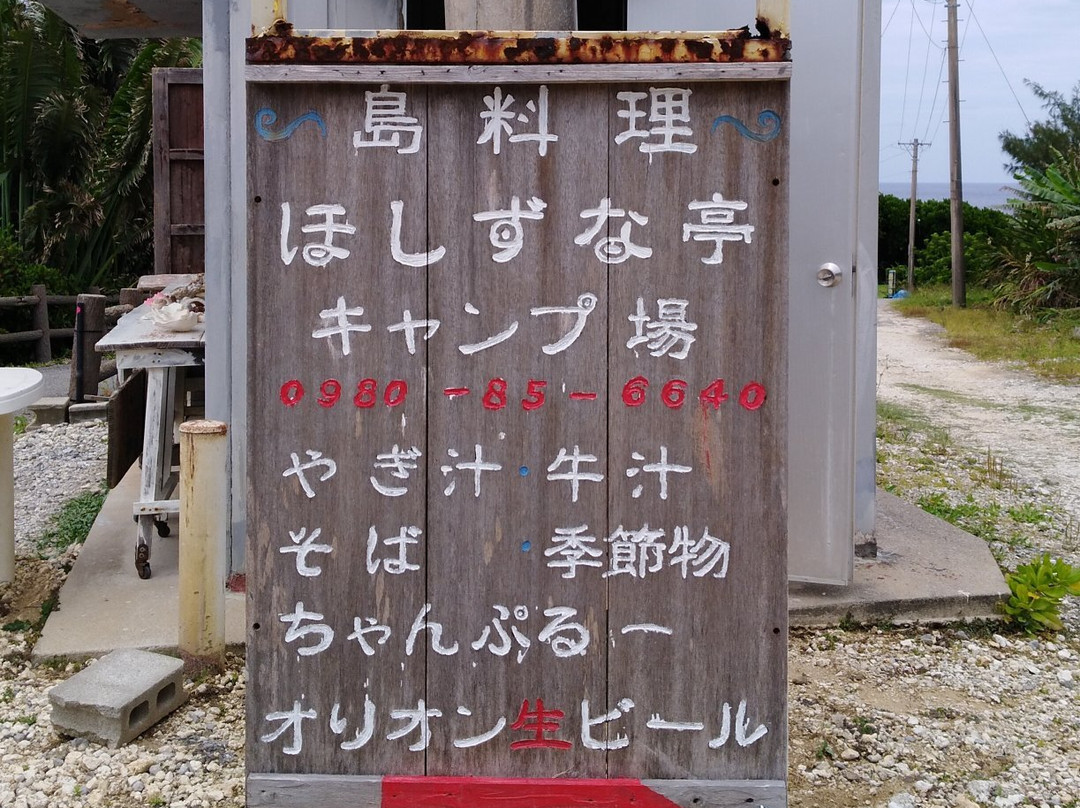 島料理
ほしずな亭
キャンプ場
0980-85-6640
やぎ汁・牛汁
そば・季節物
ちゃんぷるー
オリオン生ビール